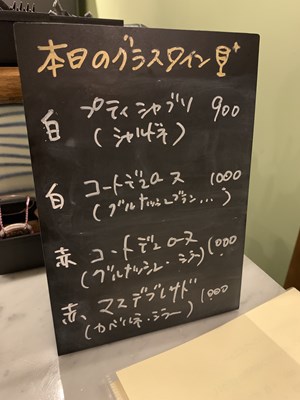 本日のグラスワイン
白 プティシャブリ 900
(シャルドネ)
白 コートデュローヌ 1000
(グルナッシュブラン...)
赤 コートデュローヌ 1000
(グルナッシュ・シラー)
赤 マスデブレサド 1000
(カベルネ・シラー)